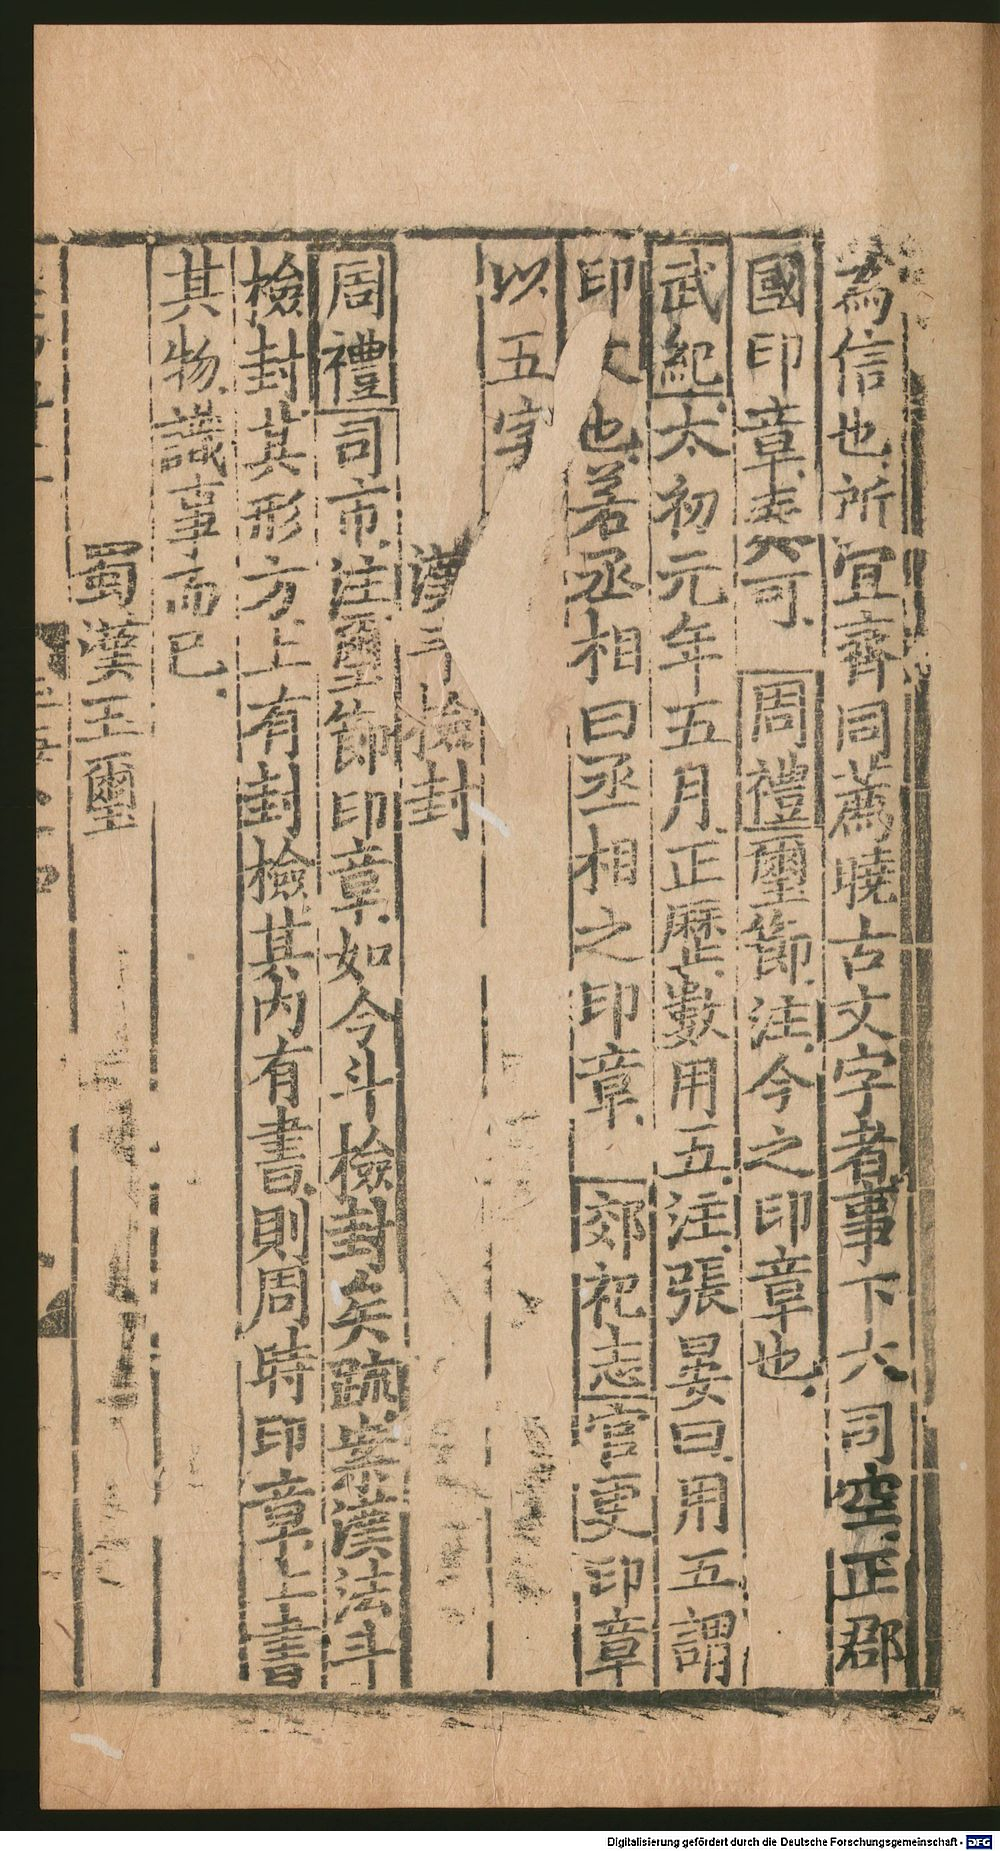 為信也所宜齊同薦曉古文字者事下大司空正郡
國印章奏可周禮璽節注今之印章也
武紀太初元年五月正歷數用五注張晏曰用五謂
印文也若丞相曰丞相之印章郊祀志官更印章
以五字
漢斗檢封
周禮司市注璽節印章如今斗檢封矣疏案漢法斗
檢封其形方上有封檢其內有書則周時印章上書
其物識事而已
蜀漢玉璽
Digitalisierung gefördert durch die Deutsche Forschungsgemeinschaft - DFG